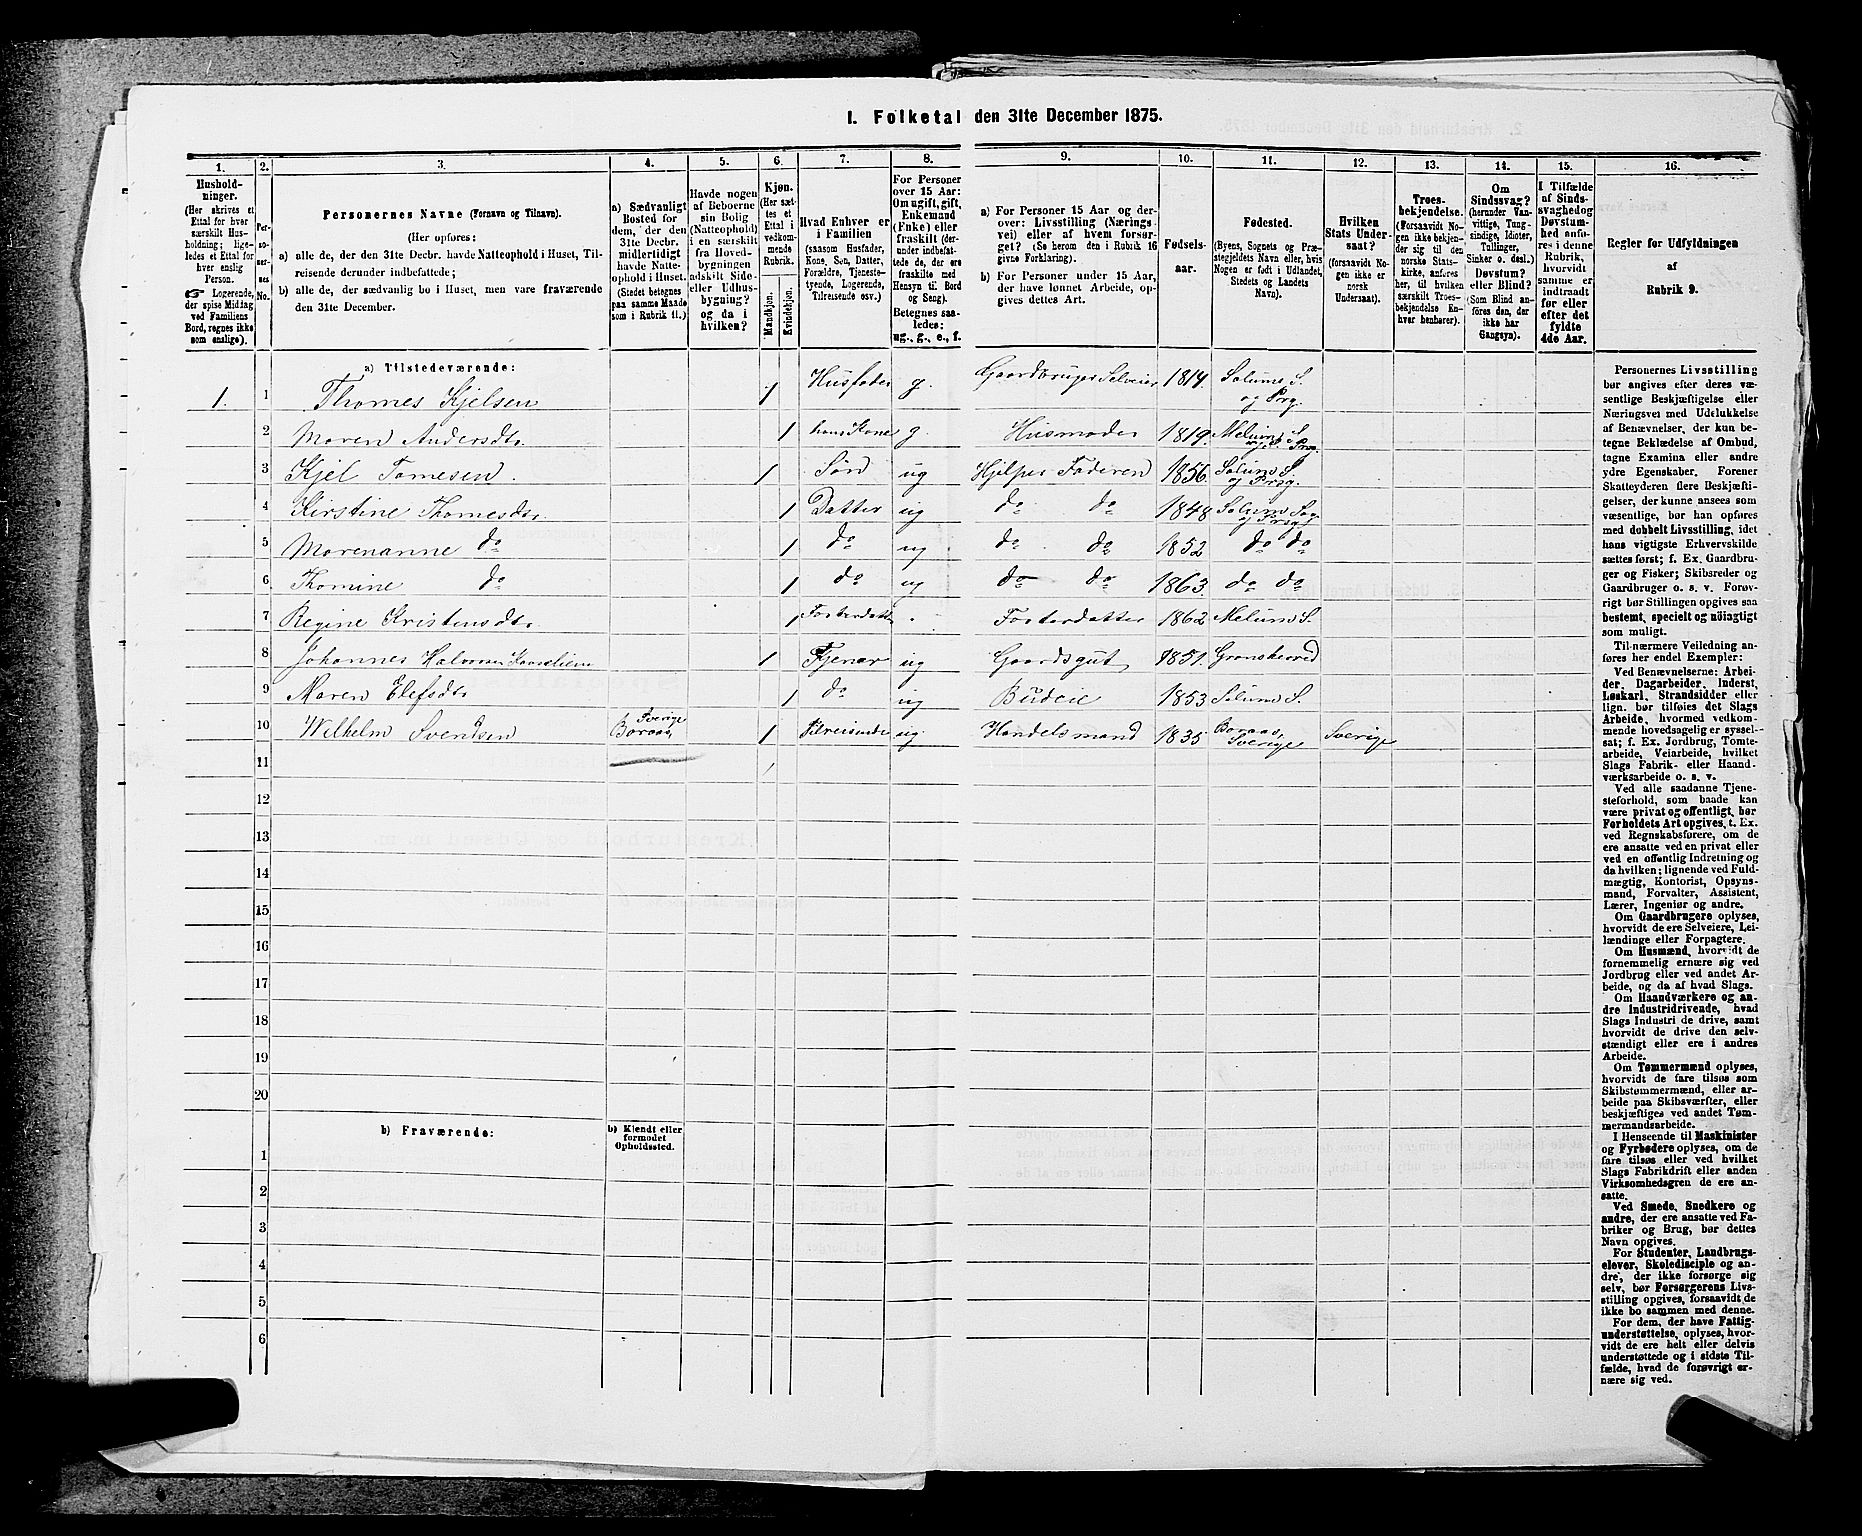 I. Folketal den 31te December 1875.
1. 2. 3. 4. 5. 6. 7. 8. 9. 10. 11. 12. 13. 14. 15. 16.
Hushold-
ninger.
(Her skrives et
Ettal for hver
særskilt Hus-
holdning; lige-
ledes et Ettal for
hver enslig
Person.
☞ Logerende,
der spise Middag
ved Familiens
Bord, regnes ikke
som enslige).
Per-
so-
ner-
nes
No.
Personernes Navne (Fornavn og Tilnavn).
(Her opføres:
a) alle de, der den 31te Decbr. havde Natteophold i Huset, Til-
reisende derunder indbefattede;
b) alle de, der sædvanlig bo i Huset, men vare fraværende
den 31te December.
a) Sædvanligt
Bosted for
dem, der den
31te Decbr.
midlertidigt
havde Natte-
ophold i Huset.
(Stedet betegnes
paa samme Maade
som i Rubrik 11.)
Havde nogen
af Beboerne
sin Bolig
(Natteophold)
i en særskilt
fra Hoved-
bygningen
adskilt Side-
eller Udhus-
bygning?
og da i
hvilken?
Kjøn.
(Her sæt-
tes et
Ettal i
vedkom-
mende
Rubrik.
Mandkjøn.
Kvindekjøn.
Hvad Enhver er
i Familien
(saasom Husfader,
Kone, Søn, Datter,
Forældre, Tjeneste-
tyende, Logerende,
Tilreisende osv.)
For Personer
over 15 Aar:
Om ugift, gift,
Enkemand
(Enke) eller
fraskilt (der-
under indbefat-
tede de, der ere
fraskilte med
Hensyn til Bord
og Seng).
Betegnes saa-
ledes:
ug., g., e., f.
a) For Personer 15 Aar og der-
over: Livsstilling (Nærings-
vei) eller af hvem forsør-
get? (Se herom den i Rubrik 16
givne Forklaring).
b) For Personer under 15 Aar,
der have lønnet Arbeide, op-
gives dettes Art.
Fødsels-
aar.
Fødested.
(Byens, Sognets og Præ-
stegjeldets Navn, eller, hvis
Nogen er født i Udlandet,
Stedets og Landets
Navn).
Hvilken
Stats Under-
saat?
(forsaavidt No-
gen ikke er
norsk
Undersaat).
Troes-
bekjendelse.
(Forsaavidt No-
gen ikke bekjen-
der sig til den
norske Stats-
kirke, anføres
her, til hvilken
særskilt Troes-
bekjendelse En-
hver henhører).
Om
Sindssvag?
(herunder Van-
vittige, Tung-
sindige, Idioter,
Tullinger,
Sinker o. desl.)
Døvstum?
eller Blind?
(Som Blind an-
føres den, der
ikke har
Gangsyn).
I Tilfælde
af Sinds-
svaghed og
Døvstum-
hed anfø-
res i denne
Rubrik,
hvorvidt
samme er
indtraadt
før eller
efter det
fyldte
4de Aar.
Regler for Udfyldningen
af
Rubrik 9.
a) Tilstedeværende:
1. 1 Thomes Kjelsen 1 Husfader g. Gaardbruger Selveier 1814 Solume S. og Prg.
2 Maren Andersdtr 1 hans Kone g. Husmoder 1819. Melum S. og S. Prg.
3 Kjel Tomesen. 1 Søn ug Hjelper Faderen 1856. Solum S. og Prsg.
4 Kirstine Thomesdtr. 1 Datter ug do do 1848 Solum Sog. og Prsg.
5 Marenanne do 1 do ug do do 1852 do do
6 Thomine do 1 do ug do do 1863. do do
7 Regine Kristensdtr. 1 Fosterdatter . Fosterdatter 1862 Melum S.
8 Johannes Halvorsen 1 Tjener ug Gaardsgut 1851. Gransherred
9 Maren Elefsdtr 1 do ug Budeie 1853 Solum S.
10 Wilhelm Svendsen Boraas, Sverige 1 Tilreisende ug. Handelsmand 1835. Boraas, Sverige Sverige
11
12
13
14
15
16
17
18
19
20
b) Fraværende:
b) Kjendt eller
formodet
Opholdssted.
1
2
3
4
5
6
Personernes Livsstilling
bør angives efter deres væ-
sentlige Beskjæftigelse eller
Næringsvei med Udelukkelse
af Benævnelser, der kun be-
tegne Beklædelse af Ombud,
tagne Examina eller andre
ydre Egenskaber. Forener
Skatteyderen flere Beskjæfti-
gelser, der kunne ansees som
væsentlige, bør han opføres
med dobbelt Livsstilling, idet
hans vigtigste Erhvervskilde
sættes først; f. Ex. Gaardbru-
ger og Fisker; Skibsreder og
Gaardbruger o. s. v. Forøv-
rigt bør Stillingen opgives saa
bestemt, specielt og nøiagtigt
som muligt.
Til nærmere Veiledning an-
føres her endel Exempler:
Ved Benævnelserne: Arbei-
der, Dagarbeider, Inderst,
Løskarl, Strandsidder eller
lign. bør tilføies det Slags
Arbeide, hvormed vedkom-
mende hovedsagelig er syssel-
sat; f. Ex. Jordbrug, Tomte-
arbeide, Veiarbeide, hvilket
Slags Fabrik- eller Haand-
værksarbeide o. s. v.
Ved alle saadanne Tjene-
steforhold, som baade kan
være privat og offentligt, bør
Forholdets Art opgives, t. Ex.
ved Regnskabsførere, om de
ere ansatte ved en privat eller
ved en offentlig Indretning og
da hvilken; lignende ved Fuld-
mægtig, Kontorist, Opsyns-
mand, Forvalter, Assistent,
Lærer, Ingeniør og andre.
Om Gaardbrugere oplyses,
hvorvidt de ere Selveiere, Lei-
lændinge eller Forpagtere.
Om Husmænd, hvorvidt de
fornemmelig ernære sig ved
Jordbrug eller ved andet Ar-
beide, og da af hvad Slags.
Om Haandværkere og an-
dre Industridrivende, hvad
Slags Industri de drive, samt
hvorvidt de drive den selv-
stændigt eller ere i andres
Arbeide.
Om Tømmermænd oplyses,
hvorvidt de fare tilsøs som
Skibstømmermænd, eller ar-
beide paa Skibsværfter, eller
beskjæftiges ved andet Tøm-
mermandsarbeide.
I Henseende til Maskinister
og Fyrbødere oplyses, om de
fare tilsøs eller ved hvilket
Slags Fabrikdrift eller anden
Virksomhedsgren de ere an-
satte.
Ved Smede, Snedkere og
andre, der ere ansatte ved Fa-
briker og Brug, bør dettes
Navn opgives.
For Studenter, Landbrugs-
elever, Skoledisciple og an-
dre, der ikke forsørge sig
selv, bør Forsørgerens Livs-
stilling opgives, forsaavidt de
ikke bo sammen med denne.
For dem, der have Fattig-
understøttelse, oplyses, hvor-
vidt de ere helt eller delvis
understøttede og i sidste Til-
fælde, hvad de forøvrigt er-
nære sig ved.